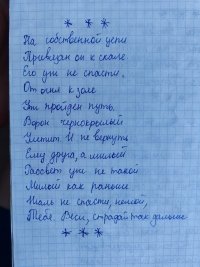 * * *
На собственной цепи
Привязан он к скале
Его уж не спасти,
От огня к золе
Уж пройден путь.
Ворон чернокрылый
Улетит. И не вернуть
Ему друга, а милый
Рассвет уж не такой
Милый как раньше
Жаль не спасти, немой,
Тебя. Веси, страдай так дальше
* * *